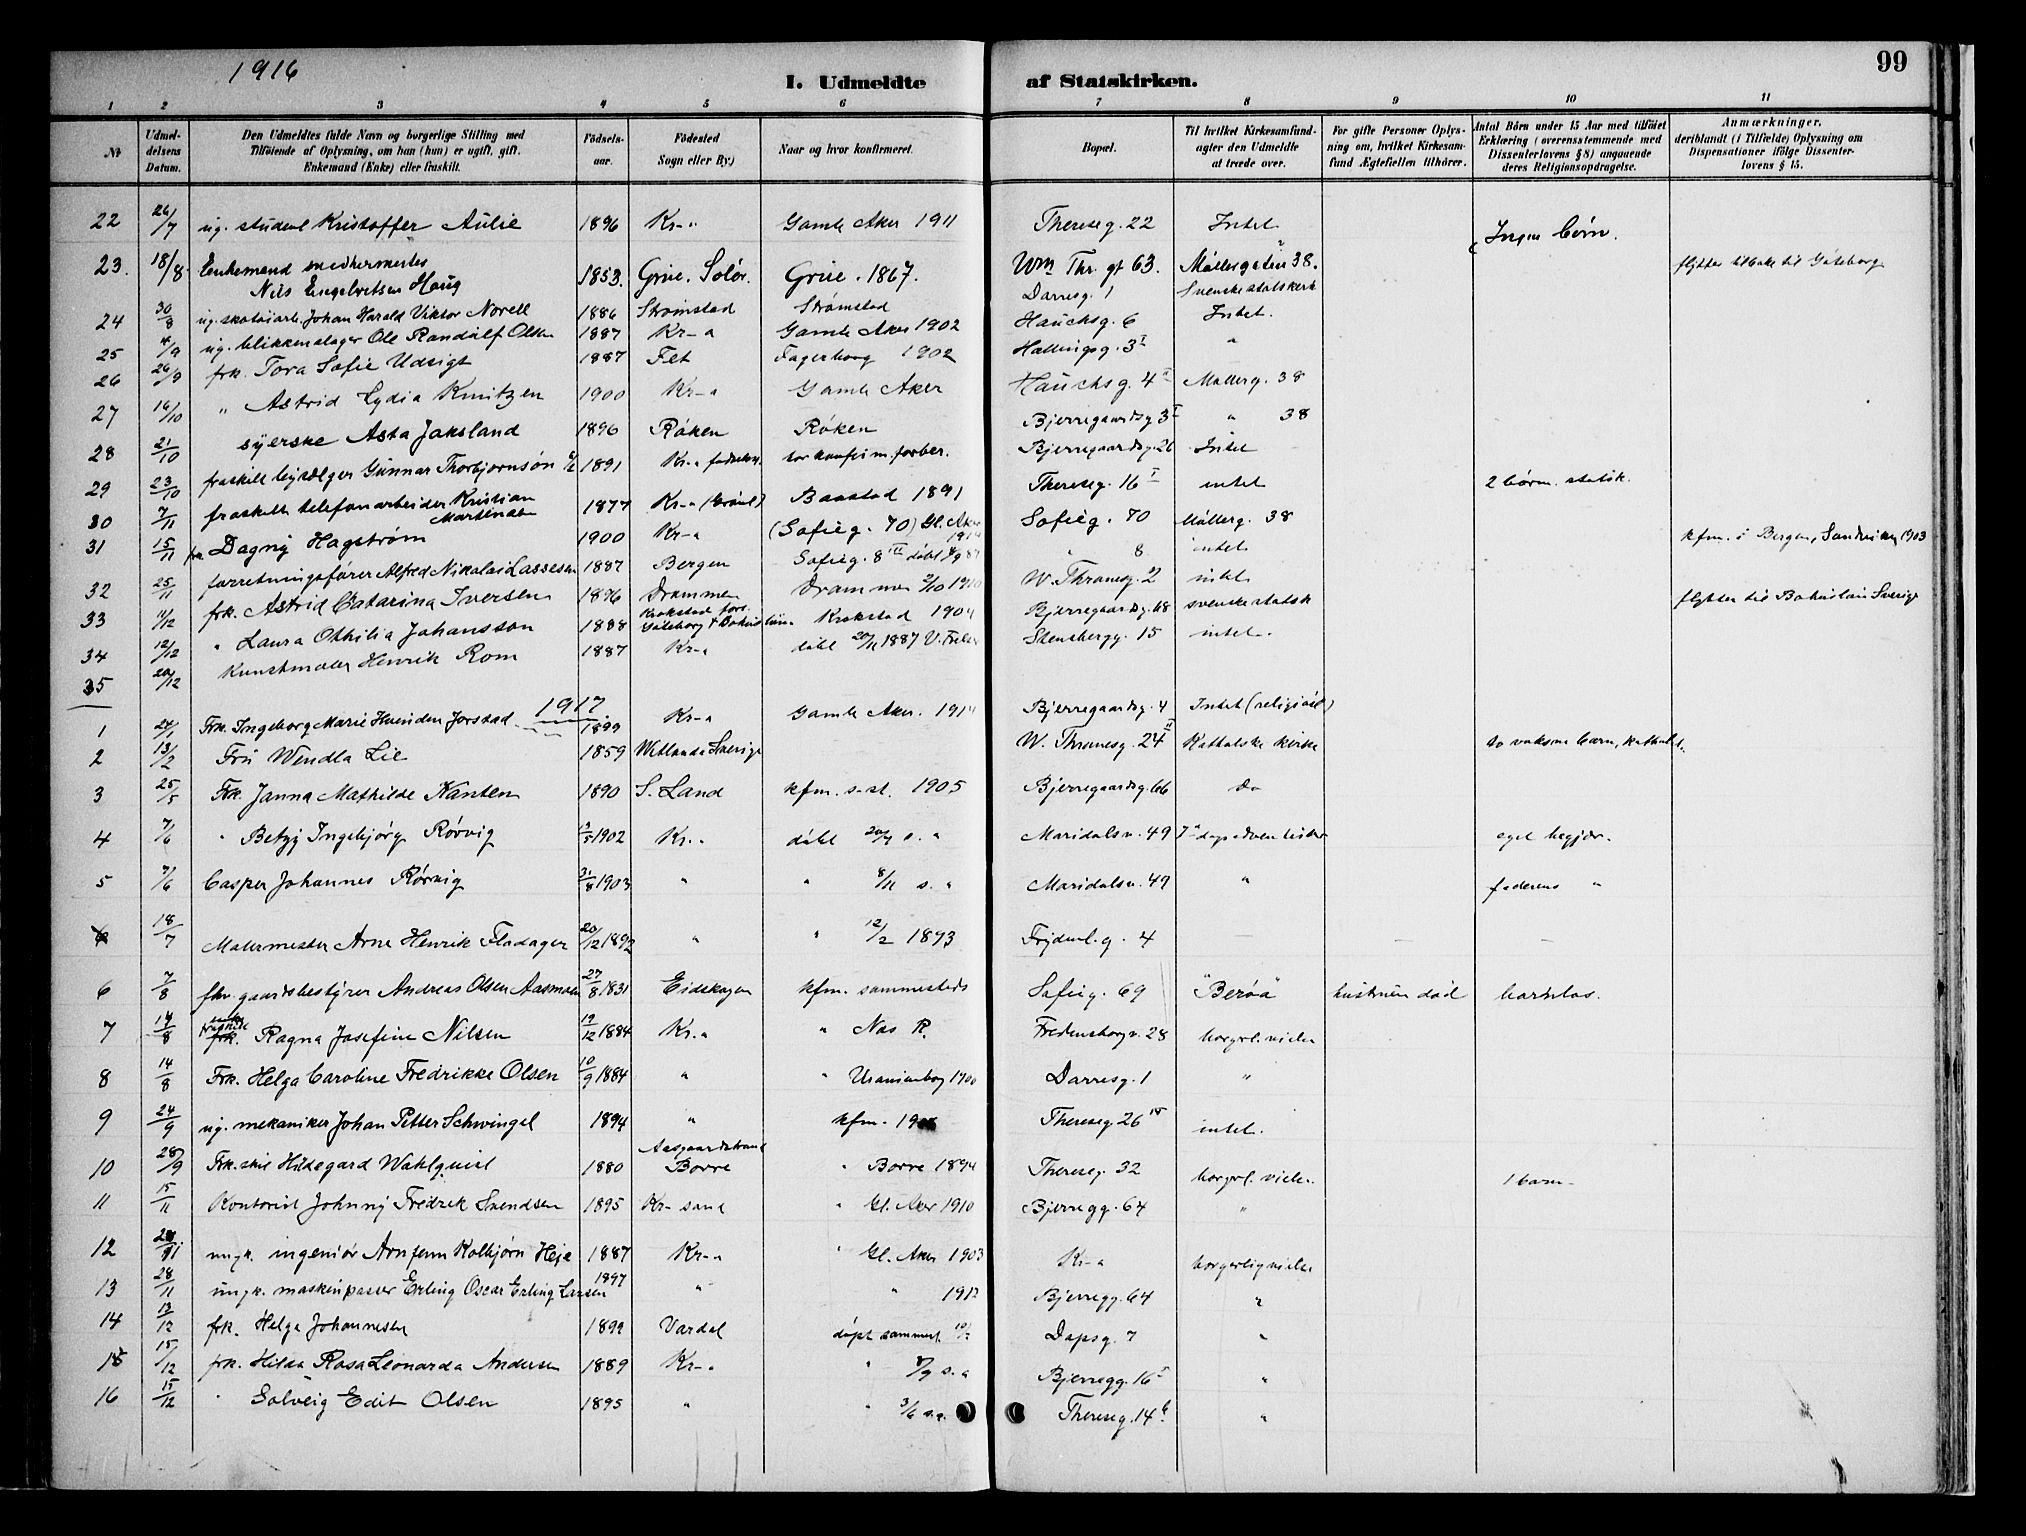 1916
I. Udmeldte af Statskirken.
99
1 2 3 4 5 6 7 8 9 10 11
Nr
Udmeldelsens Datum.
Den Udmeldtes fulde Navn og borgerlige Stilling med Tilföiende af Oplysning, om han (hun) er ugift, gift, Enkemand (Enke) eller fraskilt.
Födselsaar.
Födested Sogn eller By.)
Naar og hvor konfirmeret.
Bopæl.
Til hvilket Kirkesamfund agter den Udmeldte at træde over.
For gifte Personer Oplysning om, hvilket Kirkesamfund Ægtefællen tilhörer.
Antal Börn under 15 Aar med tilföiet Erklæring (overensstemmende med Dissenterlovens § 8) angaaende deres Religionsopdragelse.
Anmærkninger. deriblandt (i Tilfælde) Oplysning om Dispensationer ifölge Dissenterlovens § 15.
22 26/7 ug. student Kristoffer Aulie 1896 Kr-a Gamle Aker 1911 Thereseg. 22 Intet Ingen børn.
23. 18/8 Enkemand snedkermester Nils Engebretsen Haug 1853. Grue. Solør. Grue. 1867. Wm Thr. gt 63. Møllergaten 38. flytter tilbake til Gøteborg
24 30/8 ug. skotøiarb. Johan Harald Viktor Norell 1886 Strømstad Strømstad Darresg. 1 Svenske statskirk
25 4/9 ug. blikkenslager Ole Randulf Olsen 1887 Kr-a Gamle Aker 1902 Hauchsg. 6 Intet.
26 26/9 frk. Tora Sofie Udsigt 1887 Fet Fagerborg 1902 Hallingsg. 3 I "
27 16/10 " Astrid Lydia Knutzen 1900 Kr-a Gamle Aker Hauchsg. 4 II Møllerg. 38
28 21/10 syerske Asta Jaksland 1896 Røken Røken Bjerregaardsg 3 I " 38
29 23/10 fraskilt Gunnar Thorbjørnsøn 1891 Kr-a Bjerregaardsg. 26 Intet
30 7/11 fraskilt telefonarbeider Kristian Martinsen 1877 Kr-a (Grønl) Baastad 1891 Thereseg. 16 I intet 2 børn. statsk.
31 15/11 frk. Dagny Hagstrøm 1900 Kr-a (Sofieg. 70) Gl. Aker 1914 Sofieg. 70 Møllerg. 38
32 25/11 forretningsfører Alfred Nikolai Lassesen 1887 Bergen Sofieg. 8 III " 8 intet kfm. i Bergen, Sandviken 1903
33 11/12 frk. Astrid Catarina Iversen 1896 Drammen Drammen 2/10 1910 W. Thranesg. 2 intet
34 12/12 " Laura Othilia Johansson 1888 Krokstad Krokstad 1904 Bjerregaardsg. 68 svenske statsk flytter til Sverige
35 20/12 Kunstmaler Henrik Rom 1887 Kr-a døbt 20/11 1887 Stensbergg. 15 intet.
1917.
1 24/1 Frk. Ingeborg Marie Jorstad 1899 Kr-a Gamle Aker. 1914 Bjerregaardsg. 4 Intet (religiøst)
2 13/2 Fru Wendla Lie 1859 Wetlanda Sverige W. Thranesg. 24 II Katholske kirke to voksne barn, katholik.
3 25/5 Frk. Janna Mathilde Kanten 1890 S. Land kfm. s. st. 1905 Bjerregaardsg. 66 do
4 7/6 " Betzy Ingebjørg Rørvig 1902 Kr-a døbt 20/7 s. a Maridalsv. 49 7de dags adventister eget begjær.
5 7/6 Casper Johannes Rørvig 31/8 1903 " " 8/11 s. a Maridalsv. 49 " faderens "
18/7 Malermester Arne Henrik Fladager 20/12 1892 " " 12/2 1893 Frydenl. g. 4 – – –
6 7/8 fhv. gaardsbestyrer Andreas Olsen Aasmoen 27/8 1831 Eidskogen kfm. sammesteds Sofieg. 69 "Berøa" hustruen død barnløs.
7 14/8 fraskilt frk. Ragna Josefine Nilsen 19/12 1884 Kr.a " Nes R. Fredensborgv. 28 borgerl. vielse
8 14/8 Frk. Helga Caroline Fredrikke Olsen 10/9 1884 " " Uranienborg 1900 Darresg. 1 "
9 24/9 ug. mekaniker Johan Petter Schwingel 1894 " kfm. Thereseg. 26 intet.
10 28/9 Frk. Hildegard Wahlquist 1880 Aasgaardstrand Borre " Borre 1894 Thereseg. 32 borgerl. vielse. 1 barn.
11 15/11 Kontorist Johnny Fredrik Svendsen 1895 Kr-sand " Gl. Aker 1910 Bjerregg. 64 "
12 ungk. ingeniør Arnfinn Kolbjørn Heje 1887 Kr-a " Gl. Aker 1903 Kr-a borgerlig vielse
13 28/11 ungk. maskinpasser Erling Oscar Erling Larsen 1897 " " 1912 Bjerregg. 64 "
14 13/12 frk. Helga Johannesen 1899 Vardal døpt sammest. Dapsg. 7 "
15 15/12 frk. Hilda Rosa Leonarda Andersen 1889 Kr-a " 8/9 s. a Bjerregg. 16 I "
16 15/12 " Solveig Edit Olsen 1895 " " 3/6 s.a. Thereseg. 14 b "